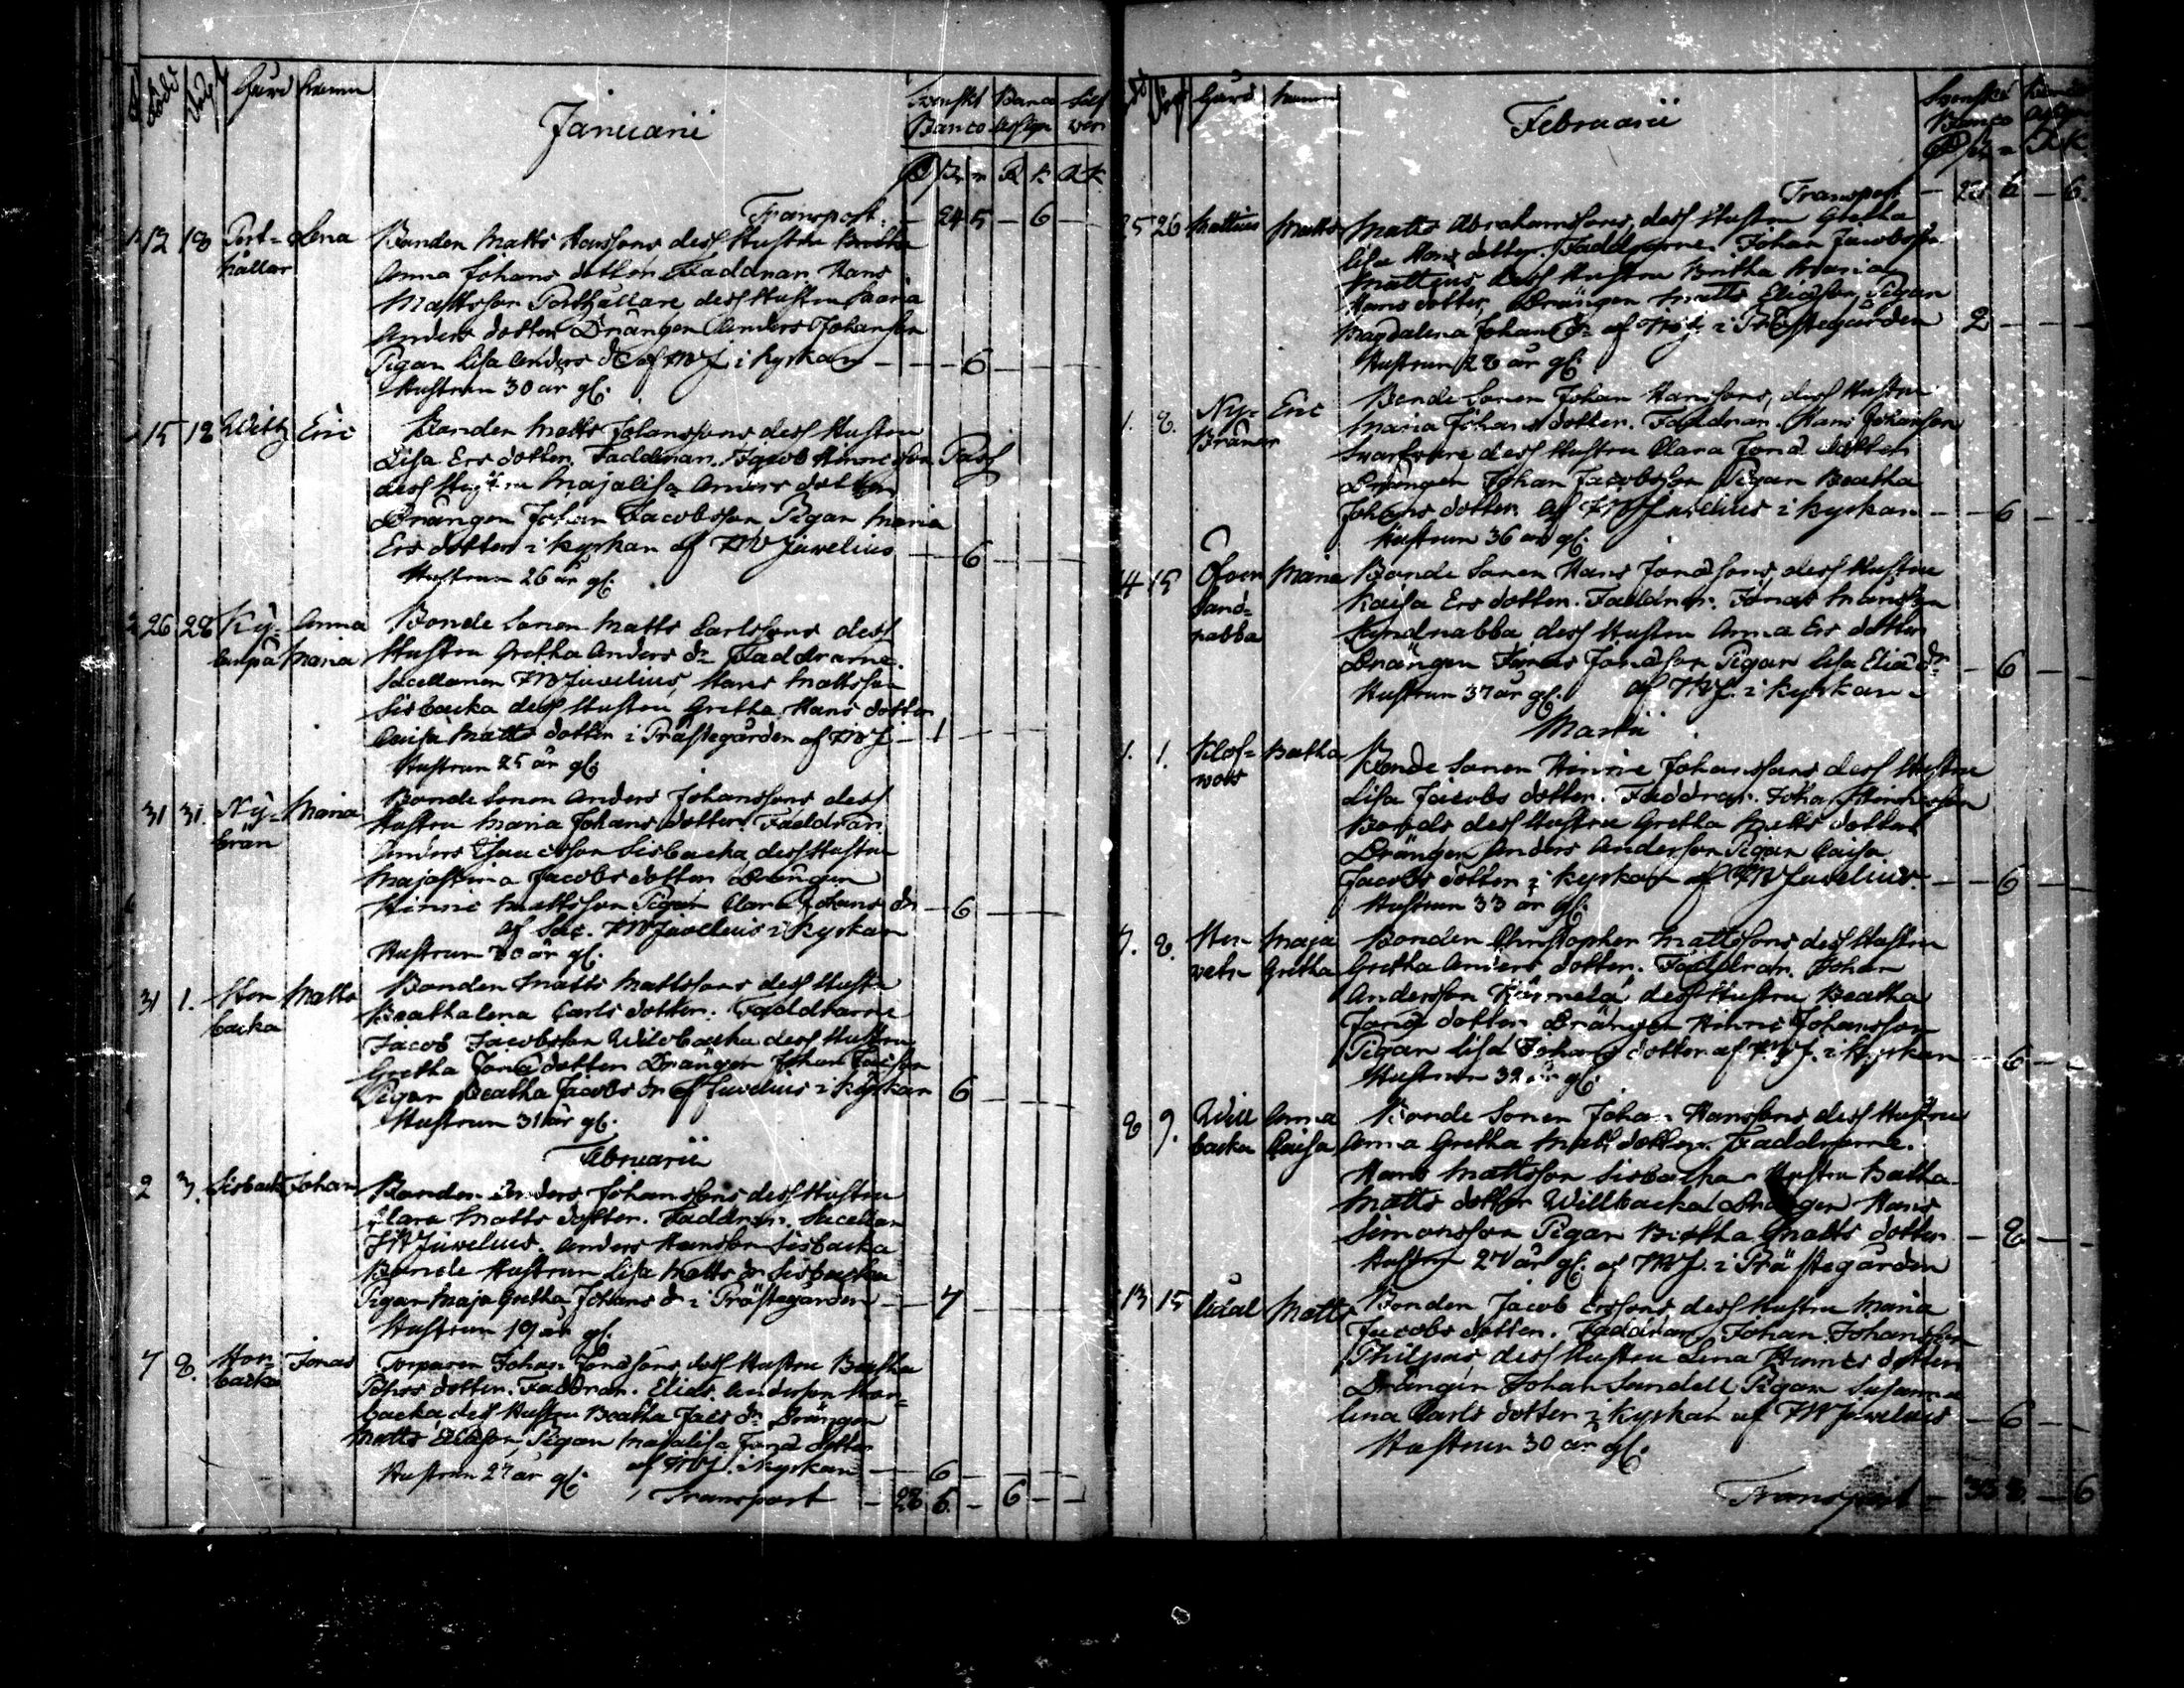 Född Gård Namn
Januarii
Svenskt Banco
Banco Assign
Silfwer
Transport 24 5 – 6
12 18 Port= Lena Bonden Matts Hanssons dess Hustru Britha
hållar Anna Johans dotter Faddrar Hans
Mattsson Porthållare dess Hustru Maria
Anders dotter Drängen Anders Johansson
Pigan Lisa Anders dr af FWJ i kyrkan – 6
Hustrun 30 år gl.
15 18 Witz Eric Bonden Matts Johanssons dess Hustru
Lisa Ers dotter. Faddrar. Jacob Hinricsson Pass
dess Hustru Majalisa Anders dotter
Drängen Johan Jacobsson Pigan Maria
Ers dotter i kyrkan af FW Juvelius – 6
Hustrun 26 år gl.
26 28 Ky= Anna Bonde Sonen Matts Carlssons dess
Maria Hustru Gretha Anders dr Faddrarne.
Sacellanen FW Juvelius, Hans Mattsson
Sisbacka dess Hustru Gretha Hans dotter
Caisa Matts dotter i Prästegården af FWJ – 1
Hustrun 25 år gl.
31 31. Ny= Maria Bonde Sonen Anders Johanssons dess
brän Hustru Maria Johans dotter Faddrar
Anders Isaacsson Sisbacka dess Hustru
Majastina Jacobs dotter Drängen
Hinric Mattsson Pigan Clara Johans dr – 6
af Sac. FW Juvelius i Kyrkan
Hustrun 20 år gl.
31 1. Hon Matts Bonden Matts Mattssons dess Hustru
backa Beathalena Carls dotter. Faddrarne
Jacob Jacobsson Wilobacka dess Hustru
Gretha Jona dotter Drängen Johan
Pigan Beatha Jacobs dr af Juvelius i Kyrkan 6
Hustrun 31 år gl.
Februarii
2 3. Sisbacka Johan Bonden Anders Johanssons dess Hustru
Clara Matts dotter. Faddrar. Sacellan
FW Juvelius. Anders Hansson Sisbacka
Bonde Hustrun Lisa Matts dr Sisbacka
Pigan Maja Gretha Johans dr i Prästegården – 7
Hustrun 19 år gl.
7 8. Hon= Jonas Torparen Johan Jonassons dess Hustru Beatha
backa dotter. Faddrar. Elias Andersson Hon=
backa dess Hustru Beatha dr Drängen
Matts Eliasson, Pigan Majalisa Jona dotter
Hustrun 27 år gl. af FWJ. i kyrkan – 6
Transport – 28 6 – 6
Gård Namn
Februarii
Svenskt Banco
Transport – 28 6 – 6.
25 26 Mattius Matts Matts Abrahamssons, dess Hustru Gretha
Lisa Hans dotter. Faddrarne. Johan Jacobsson
Matteus, dess Hustru Britha Maria
Hans dotter, Drängen Matts Eliasson, Pigan
Magdalena Johans dr af FWJ i Prästegården 2
Hustrun 28 år gl.
1. 8. Ny= Eric Bonde Sonen Johan Hanssons, dess Hustru
Brännar Maria Johans dotter. Faddrar. Hans Johansson
dess Hustru Clara Jona dotter
Drängen Johan Jacobsson Pigan Beatha
Johans dotter af FW Juvelius i kyrkan – 6
Hustrun 36 år gl.
14 15 Maria Bonde Sonen Hans Jonassons, dess Hustru
Sand= Kaisa Ers dotter. Faddrar. Jonas
nabba Sandnabba dess Hustru Anna Ers dotter
Drängen Jonas Jonasson Pigan Lisa Elia dr – 6
Hustrun 37 år gl. af FWJ. i kyrkan
Martii
1. 1. Klof= Beatha Bonde Sonen Hinric Johanssons dess Hustru
wars Lisa Jacobs dotter. Faddrar. Johan Hinricsson
dess Hustru Gretha Matts dotter
Drängen Anders Andersson Pigan Caisa
Jacobs dotter i kyrkan af FW Juvelius. – 6
Hustrun 33 år gl.
7. 8. Maja Bonden Christopher Mattssons dess Hustru
Gretha Gretha Anders dotter. Faddrar. Johan
Andersson dess Hustru Beatha
Jona dotter Drängen Hinric Johansson
Pigan Lisa Johans dotter af FWJ. i Kyrkan – 6
Hustrun 32 år gl.
8 9. Will Anna Bonde Sonen Johan Hanssons dess Hustru
backa Caisa Anna Gretha Matts dotter. Faddrarne.
Hans Mattsson Sisbacka Hustru Beatha
Matts dotter Willbacka Drängen Hans
Simonsson Pigan Britha Matts dotter – 8
Hustrun 27 år gl. af FWJ. i Prästegården
13 15 Matts Bonden Jacob Erssons dess Hustru Maria
Jacobs dotter. Faddrar Johan Johansson
Philpus dess Hustru Lena Hinrics dotter
Drängen Johan Sundell Pigan Susanna
Lena Carls dotter i kyrkan af FW Juvelius – 6
Hustrun 30 år gl.
Transport – 33 8 – 6